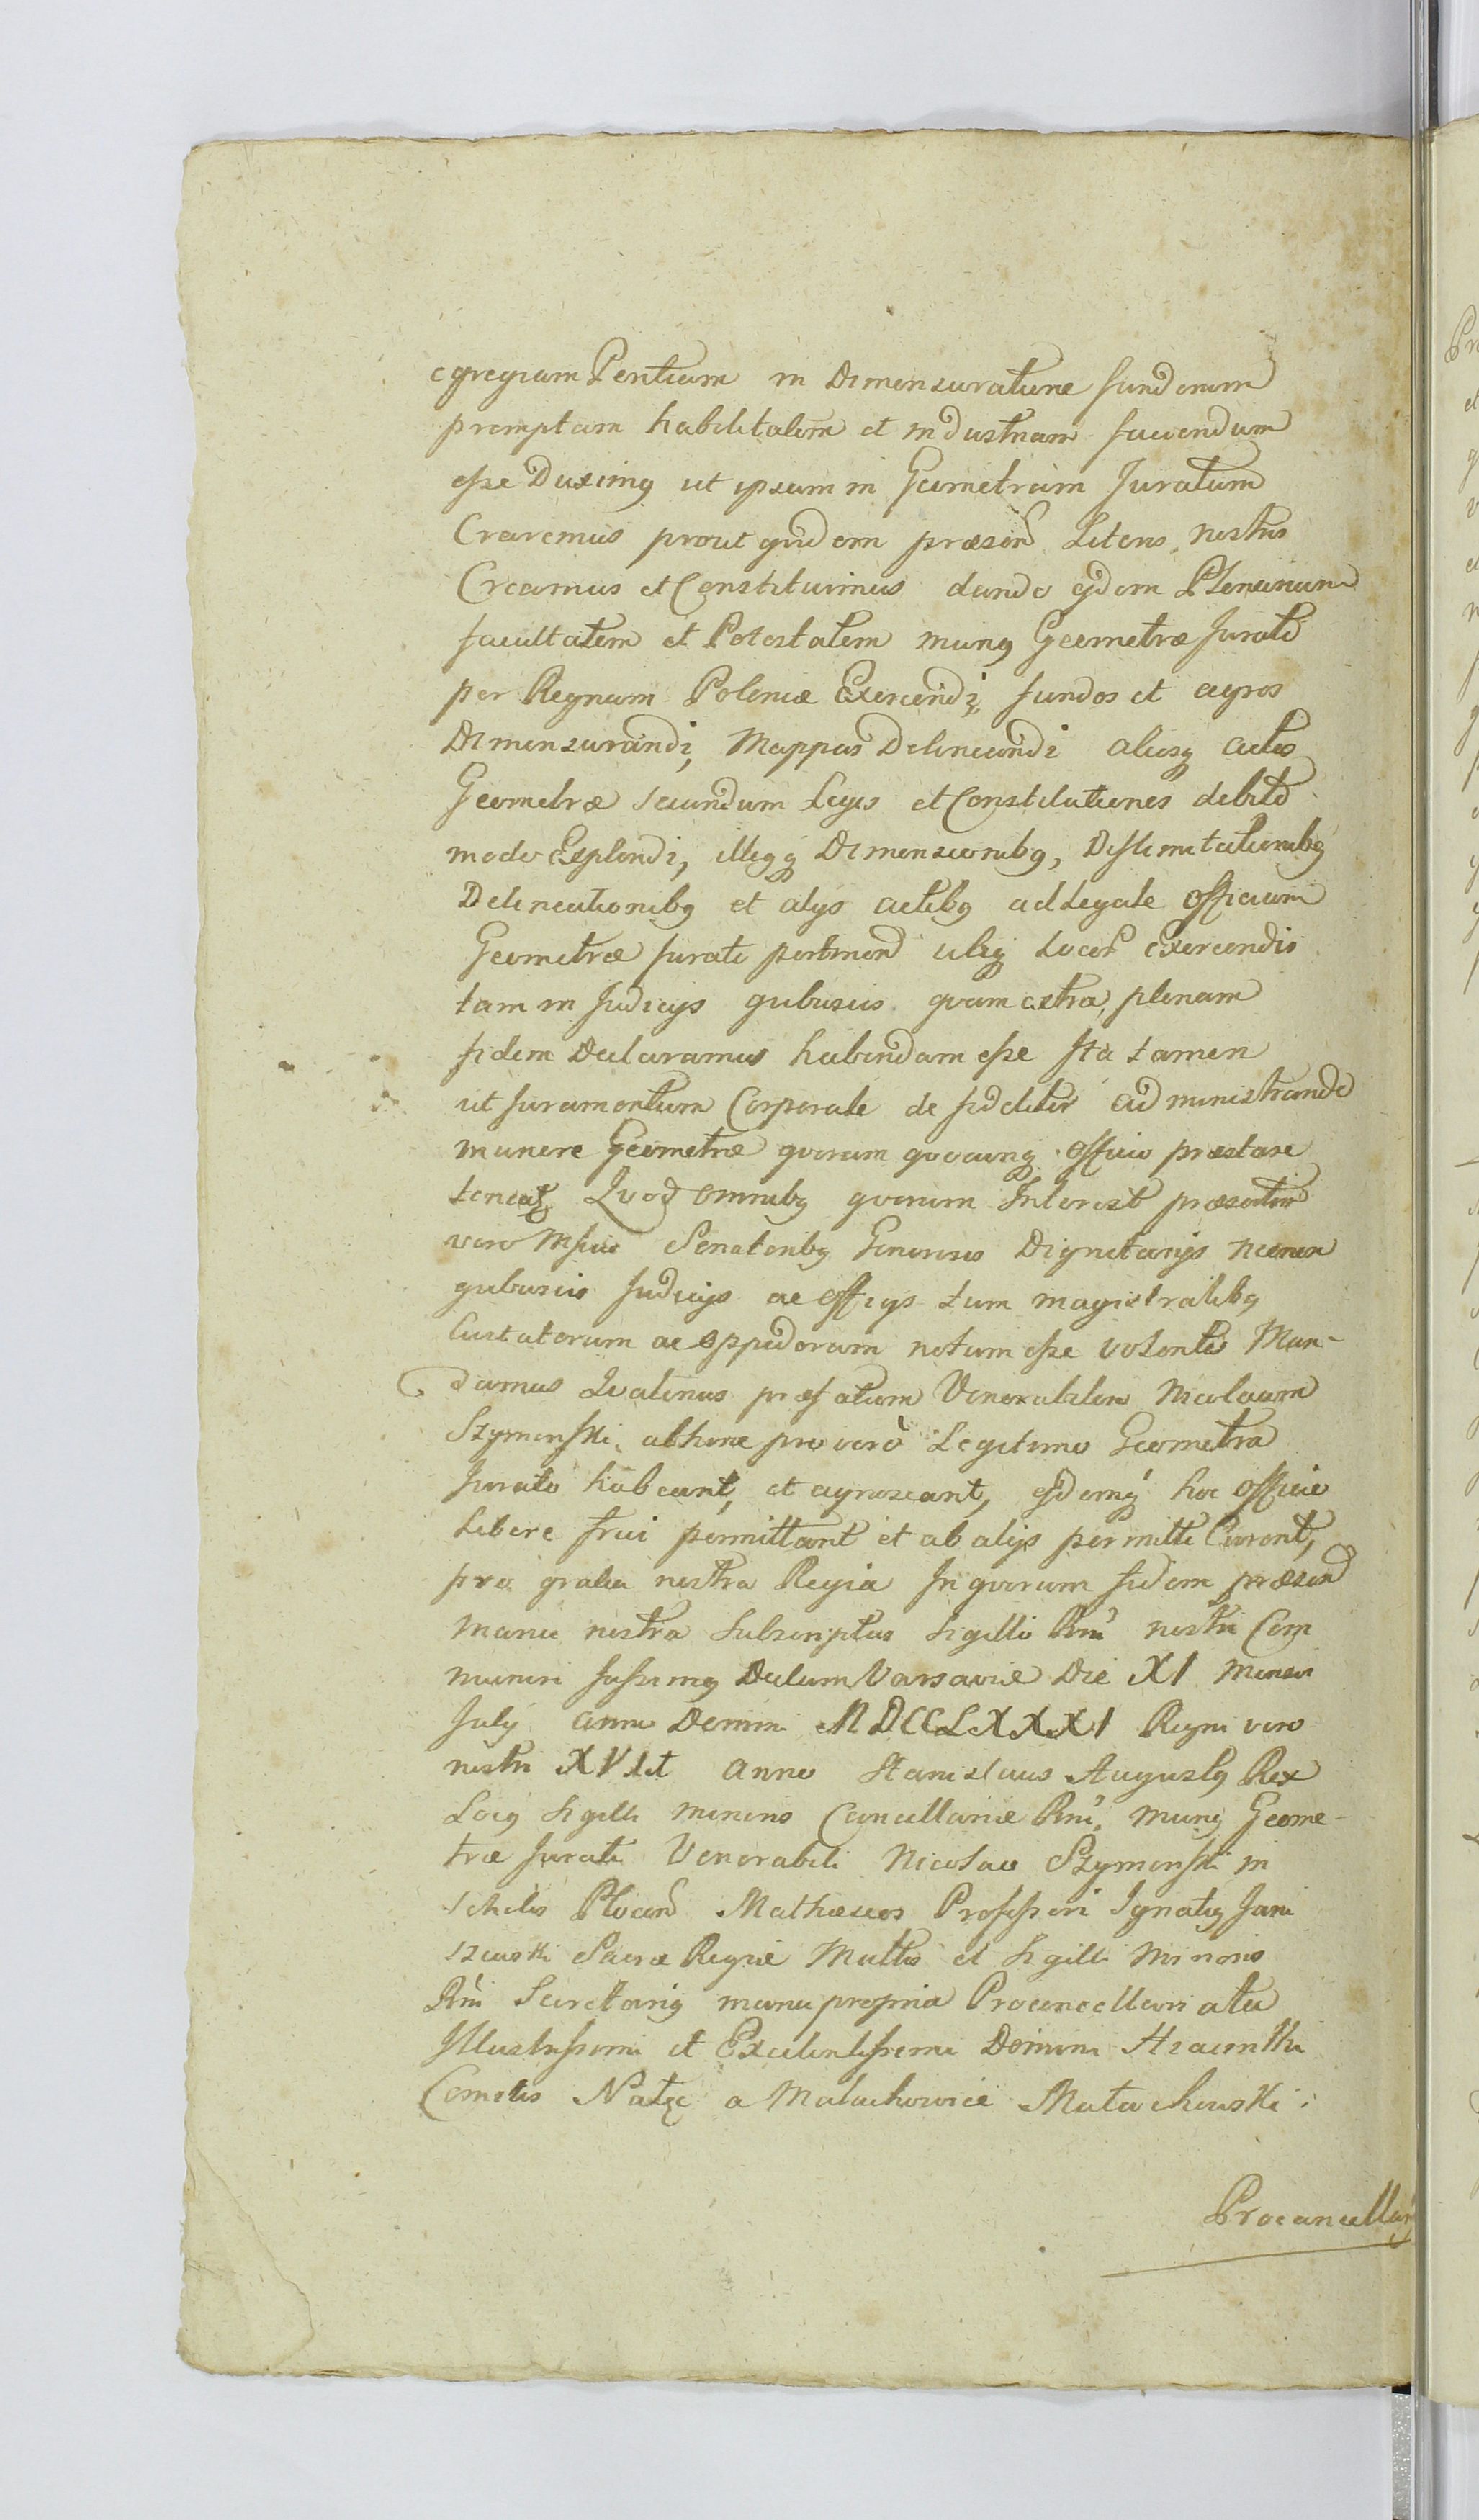 egregiam Peritiam in Dimensuratione fundorum
promptam habilitatem et industriam faciendum
esse Duximq ut ipsum in Geometram Juratum
Crearemus prout quidem præsend Literis nostris
Creamus et Constituimus dando ejdem Plenariam
facultatem et Potestatem munq Geometræ Jurati
per Regnum Poloniæ Exercendi, fundos et agros
Dimensurandi, Mappas Delineandi aliosq actus
Geometræ secundum Leges et Constitutiones debito
modo Explendi, illisq q Dimensionibq, Dislimitationibq
Delineationibq et alijs actibq ad Legale officium
Geometræ Jurati pertinend ubiq Locor exercendis
tam in Judicijs quibusvis quam extra, plenam
fidem Declaramus habendam esse Ita tamen
ut Juramentum Corporale de fideliter administrando
munere Geometræ quorum quocunq officio præstare
teneatq Quod omnibq quorum Interest præsertim
vero Senatoribq Generosis Dignitarijs necnon
quibusvis Judicijs ac officijs tum magistratibq
Civitatorum ac oppidorum notum esse volentes Man-
damus Qvatenus præfatum Venerabilem Nicolaum
Szymanski abhinc pro vero Legitimo Geometra
Jurato habeant, et agnoscant, ejdemq hoc officio
Libere frui permittant et ab alijs permitti Curent,
pro gratia nostra Regia In quorum fidem præsend
manu nostra Subscriptas Sigillo Rni nostri Com
muniri jussimq Datum Varsaviæ Die XI mensis
Julij anno Domini MDCCLXXXI Regni vero
nostri XVII anno Stanislaus Augustq Rex
Locq Sigilli minoris Cancellariæ Rni, munq Geome-
træ Jurati Venerabili Nicolao Szymanski in
scholis Plocend Matheseos Professori Ignatiq Jani
szewski Sacræ Regiæ Mattis et Sigilli minoris
Rni Secretariq manu propria Procancellariatu
Illustrissimi et Excelentissimi Domini Hiacinthi
Comitis Nałęc a Małachowice Małachowski
Procancellarij